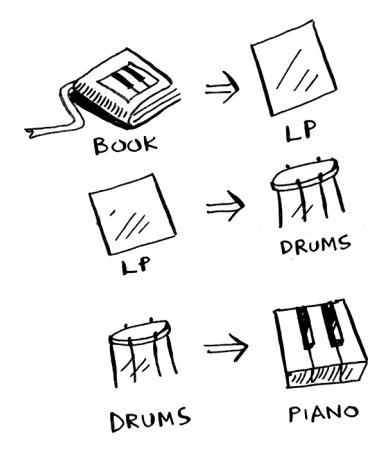 BOOK
LP
LP
DRUMS
DRUMS
PIANO